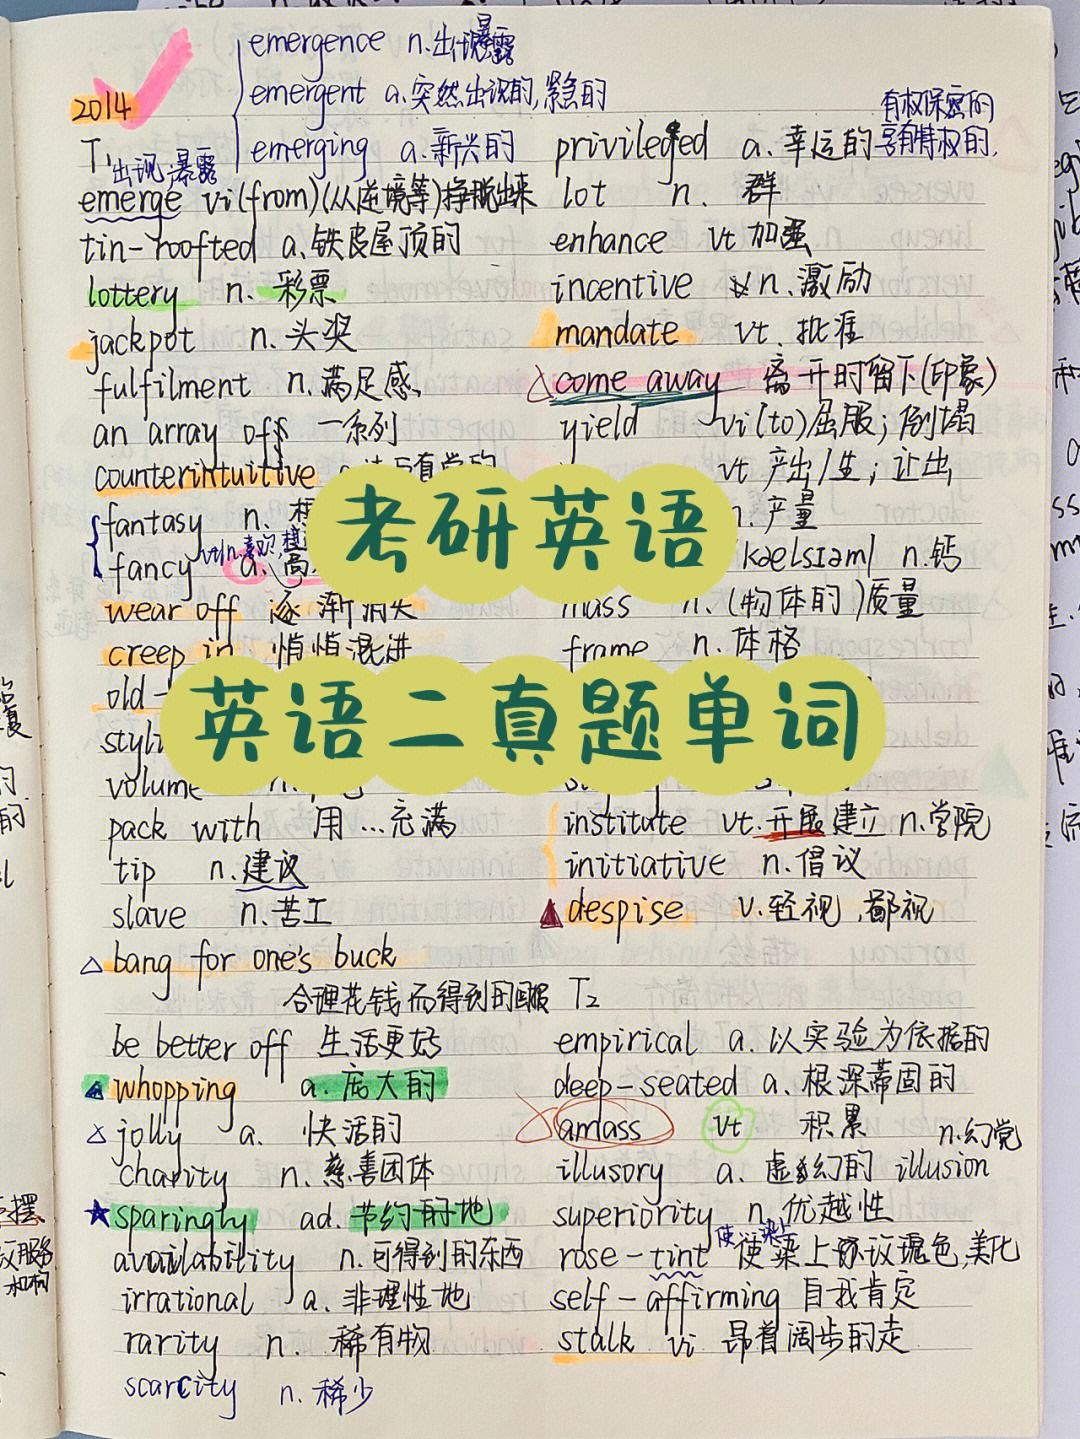 emergence n.出现暴露
emergent a.突然出现的,紧急的
emerging a.新兴的
2014
T1
出现.暴露
emerge vi(from)(从逆境等)挣脱出来
tin-roofted a.铁皮屋顶的
lottery n.彩票
jackpot n.头奖
fulfilment n.满足感
an array off 一系列
counterintuitive
fantasy n.
fancy a.
wear off 逐渐消失
creep in 悄悄混进
old-
volume
pack with 用…充满
tip n.建议
slave n.苦工
bang for one's buck
合理花钱而得到的回报
be better off 生活更好
whopping a.庞大的
jolly a. 快活的
charity n.慈善团体
sparingly ad.节约的地
availability n.可得到的东西
irrational a.非理性地
rarity n.稀有物
scarcity n.稀少
有权保密的
privileged a.幸运的享有特权的,
lot n.群
enhance vt加强
incentive n.激励
mandate vt.批准
come away 离开时留下(印象)
yield vi(to)屈服,倒塌
vt.产出/生;让出
n.产量
n.钙
mass n.(物体的)质量
frame n.体格
institute vt.开展建立 n.学院
initiative n.倡议
despise v.轻视,鄙视
T2
empirical a.以实验为依据的
deep-seated a.根深蒂固的
amass vt 积累
n.幻觉
illusory a.虚幻的 illusion
superiority n.优越性
rose-tint 使染上玫瑰色,美化
self-affirming 自我肯定
stalk vi 昂首阔步的走
考研英语
英语二真题单词